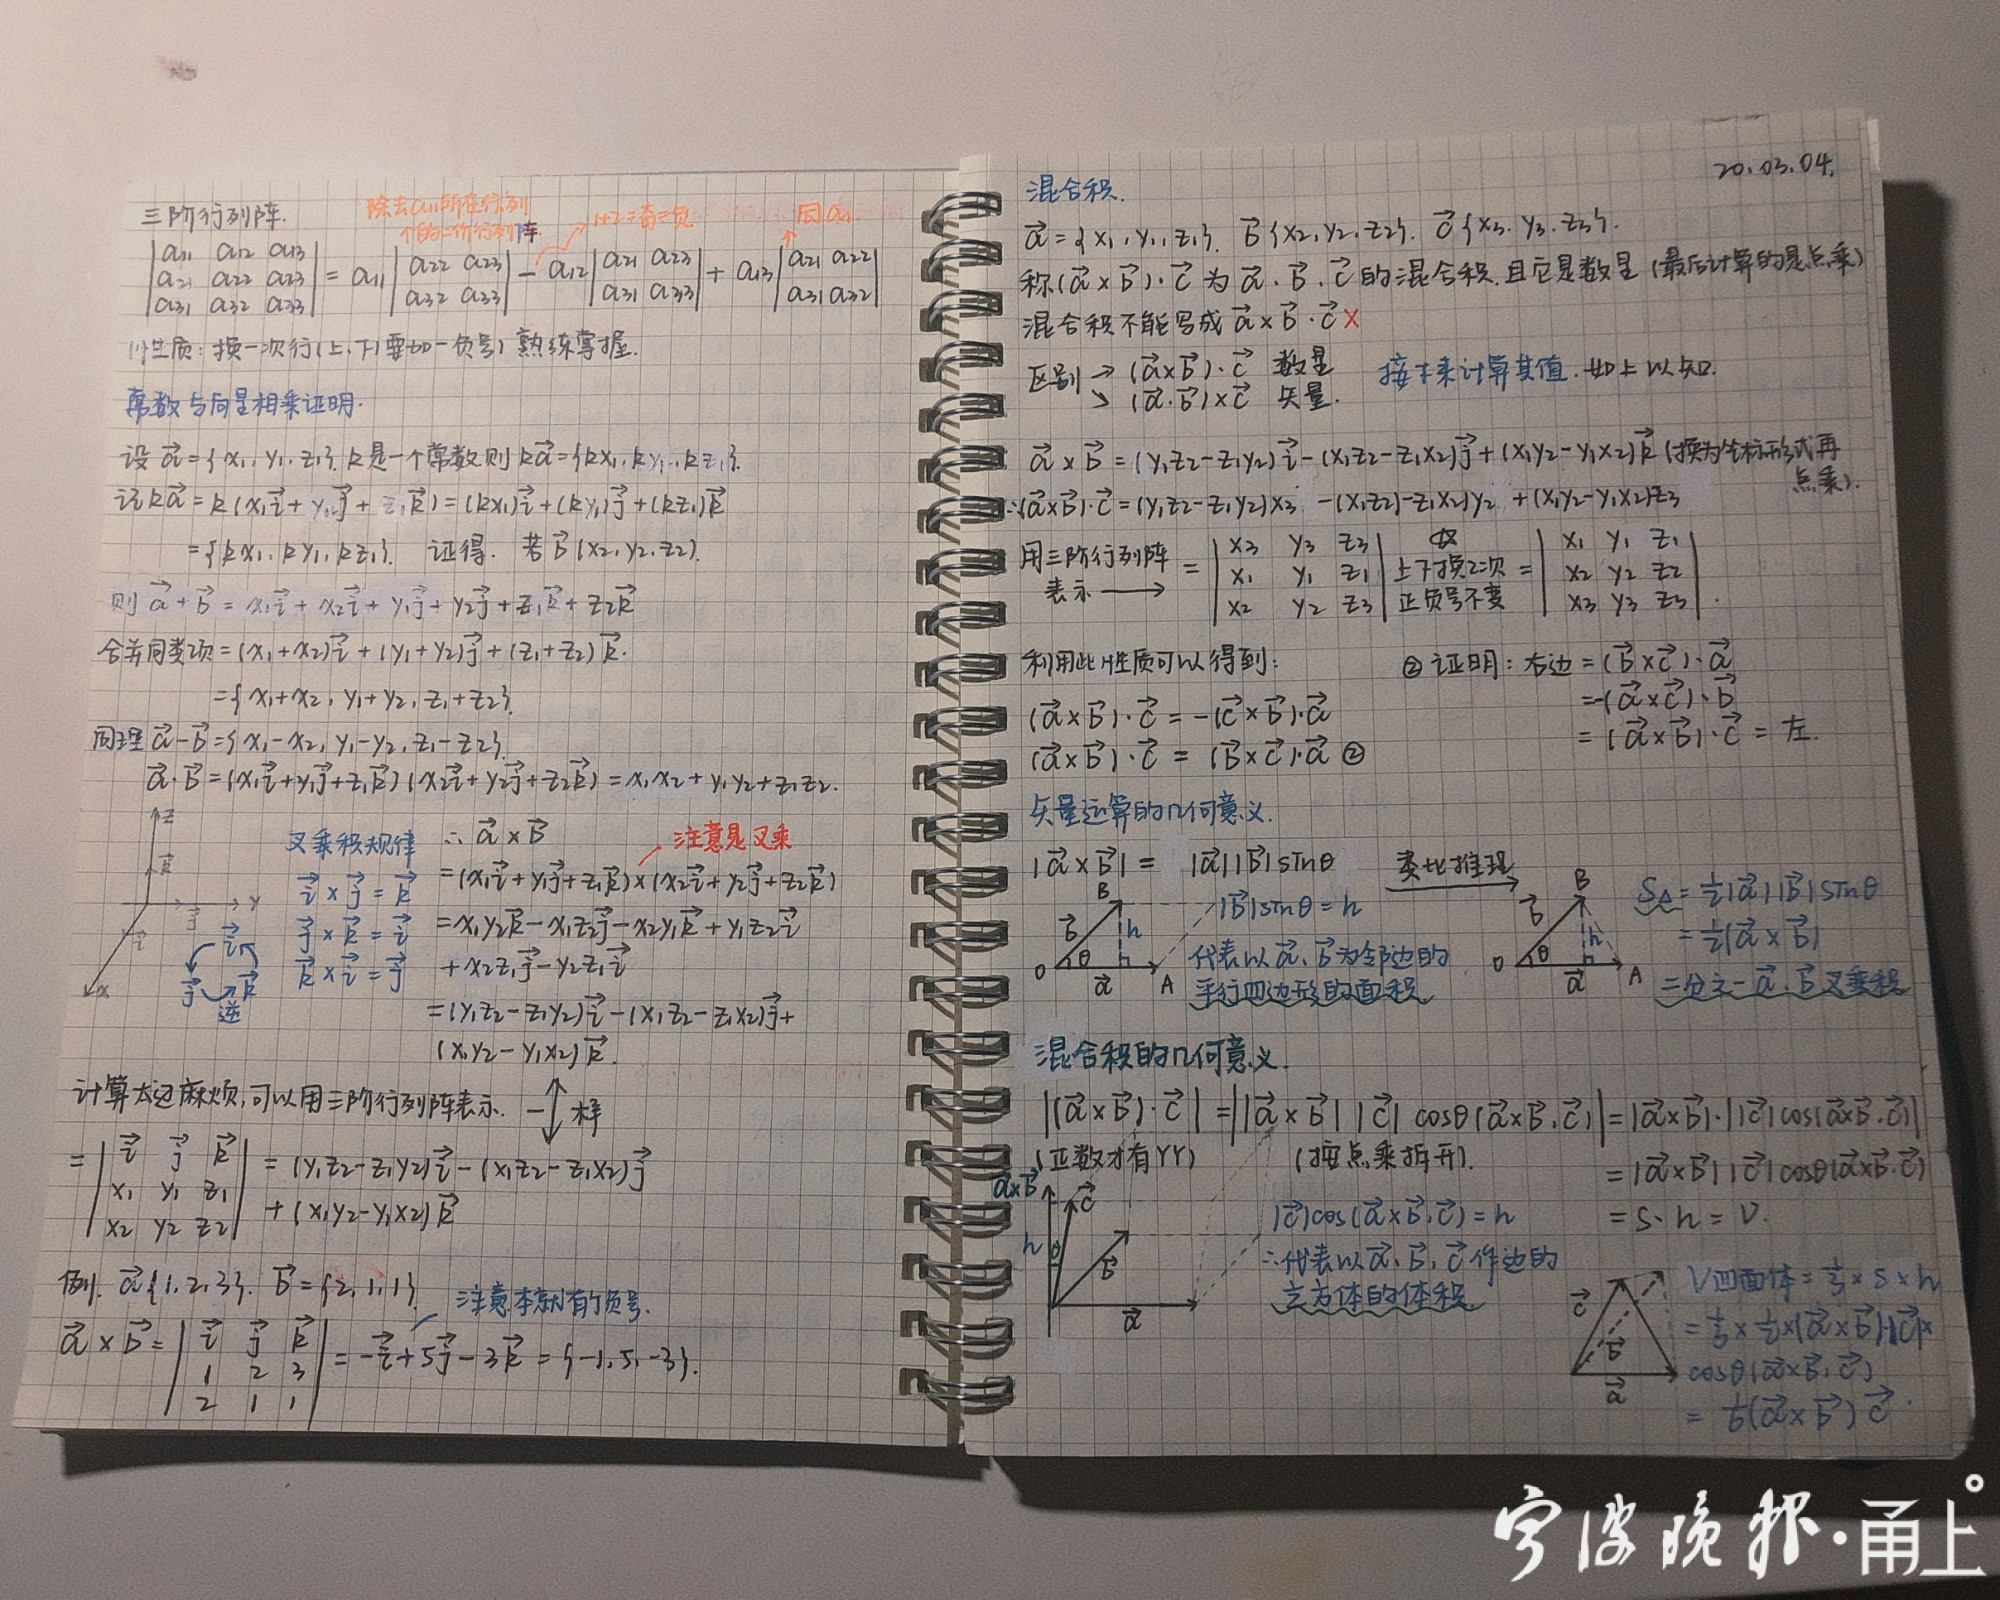 三阶行列阵.
除去a11所在行列
个的二阶行列阵
1+2=奇=负
同a11
|a11 a12 a13|
|a21 a22 a23| = a11 |a22 a23| - a12 |a21 a23| + a13 |a21 a22|
|a31 a32 a33| |a32 a33| |a31 a33| |a31 a32|
性质: 换一次行(上、下)要加一负号) 熟练掌握.
常数与向量相乘证明.
设 a⃗={x1, y1, z1}. k是一个常数则 ka⃗={kx1, ky1, kz1}.
证ka⃗=k(x1i⃗+y1j⃗+z1k⃗)=(kx1)i⃗+(ky1)j⃗+(kz1)k⃗
={kx1, ky1, kz1}. 证得. 若b⃗(x2,y2,z2).
则 a⃗+b⃗ = x1i⃗+x2i⃗+y1j⃗+y2j⃗+z1k⃗+z2k⃗
合并同类项=(x1+x2)i⃗+(y1+y2)j⃗+(z1+z2)k⃗.
={x1+x2, y1+y2, z1+z2}.
同理 a⃗-b⃗={x1-x2, y1-y2, z1-z2}.
a⃗·b⃗=(x1i⃗+y1j⃗+z1k⃗)(x2i⃗+y2j⃗+z2k⃗)=x1x2+y1y2+z1z2.
z
k⃗
y
j⃗
i⃗
x
叉乘积规律
i⃗×j⃗=k⃗
j⃗×k⃗=i⃗
k⃗×i⃗=j⃗
i⃗
j⃗ k⃗
逆
∴ a⃗×b⃗
注意是叉乘
=(x1i⃗+y1j⃗+z1k⃗)×(x2i⃗+y2j⃗+z2k⃗)
=x1y2k⃗-x1z2j⃗-x2y1k⃗+y1z2i⃗
+x2z1j⃗-y2z1i⃗
=(y1z2-z1y2)i⃗-(x1z2-z1x2)j⃗+
(x1y2-y1x2)k⃗.
计算太过麻烦,可以用三阶行列阵表示. 一样
=|i⃗ j⃗ k⃗| =(y1z2-z1y2)i⃗-(x1z2-z1x2)j⃗
|x1 y1 z1| +(x1y2-y1x2)k⃗
|x2 y2 z2|
例. a⃗{1,2,3}. b⃗={2,1,1}
注意本就有的负号.
a⃗×b⃗=|i⃗ j⃗ k⃗| =-i⃗+5j⃗-3k⃗={-1,5,-3}.
|1 2 3|
|2 1 1|
20.03.04.
混合积.
a⃗={x1,y1,z1}. b⃗{x2,y2,z2}. c⃗{x3,y3,z3}.
称(a⃗×b⃗)·c⃗为a⃗、b⃗、c⃗的混合积.且它是数量(最后计算的是点乘)
混合积不能写成 a⃗×b⃗·c⃗ ×
区别→(a⃗×b⃗)·c⃗ 数量
↘(a⃗·b⃗)×c⃗ 矢量.
接下来计算其值.如上以知.
a⃗×b⃗=(y1z2-z1y2)i⃗-(x1z2-z1x2)j⃗+(x1y2-y1x2)k⃗(换为坐标形式再
点乘).
∴(a⃗×b⃗)·c⃗=(y1z2-z1y2)x3 -(x1z2)-z1x2)y2 +(x1y2-y1x2)z3
用三阶行列阵
表示 →
=|x3 y3 z3| ☆ |x1 y1 z1|
|x1 y1 z1| 上下换2次 = |x2 y2 z2|
|x2 y2 z3| 正负号不变 |x3 y3 z3|.
利用此性质可以得到:
(a⃗×b⃗)·c⃗=-(c⃗×b⃗)·a⃗
(a⃗×b⃗)·c⃗=(b⃗×c⃗)·a⃗ ②
②证明: 右边=(b⃗×c⃗)·a⃗
=-(a⃗×c⃗)·b⃗
=(a⃗×b⃗)·c⃗=左.
矢量运算的几何意义.
|a⃗×b⃗|= |a⃗||b⃗|sinθ
类比推理
B
b⃗
h
O θ a⃗ A
|b⃗|sinθ=h
代表以a⃗、b⃗为邻边的
平行四边形的面积
B
b⃗
h
O θ a⃗ A
S△=½|a⃗||b⃗|sinθ
=½(a⃗×b⃗)
二分之一a⃗、b⃗叉乘积
混合积的几何意义.
|(a⃗×b⃗)·c⃗|=||a⃗×b⃗||c⃗|cosθ(a⃗×b⃗,c⃗)|=|a⃗×b⃗|·||c⃗|cos(a⃗×b⃗,c⃗)|
(正数才有YY) (按点乘拆开). =|a⃗×b⃗||c⃗|cosθ(a⃗×b⃗,c⃗)
=S·h=V.
a⃗×b⃗
c⃗
h
θ
b⃗
a⃗
|c⃗|cos(a⃗×b⃗,c⃗)=h
∴代表以a⃗、b⃗、c⃗作边的
立方体的体积
c⃗
b⃗
a⃗
V四面体=⅓×S×h
=⅓×½×(a⃗×b⃗)·|c⃗|×
cosθ(a⃗×b⃗,c⃗)
=⅙(a⃗×b⃗)c⃗.
宁波晚报·甬上